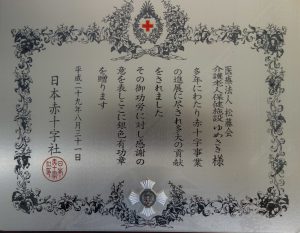 医療法人 松藤会
介護老人保健施設 ゆめさき 様
多年にわたり赤十字事業
の進展に尽され多大の貢献
をされました
その御功労に対し感謝の
意を表しここに銀色有功章
を贈ります
平成二十九年八月三十一日
日本赤十字社